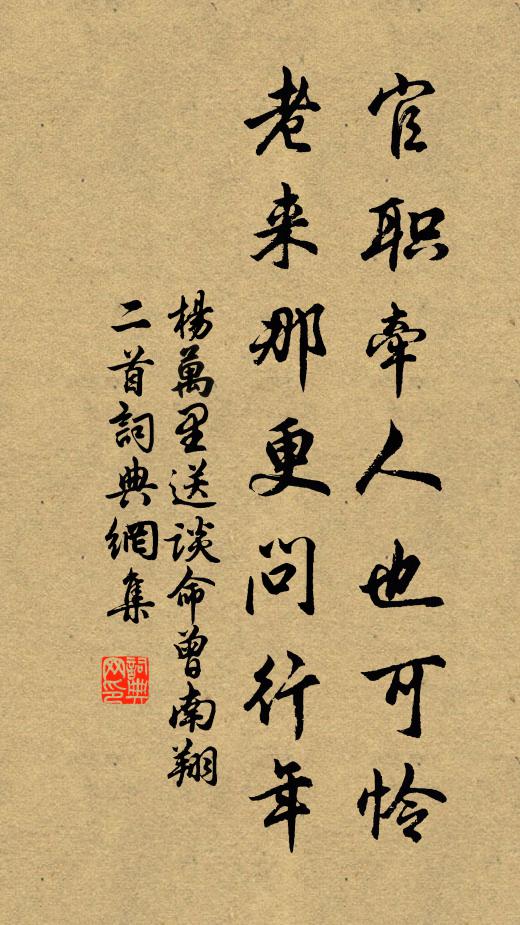 官职牵人也可怜
老来那更问行年
楊萬里送談命曾南翔
二首詞典網集
詞典
网印